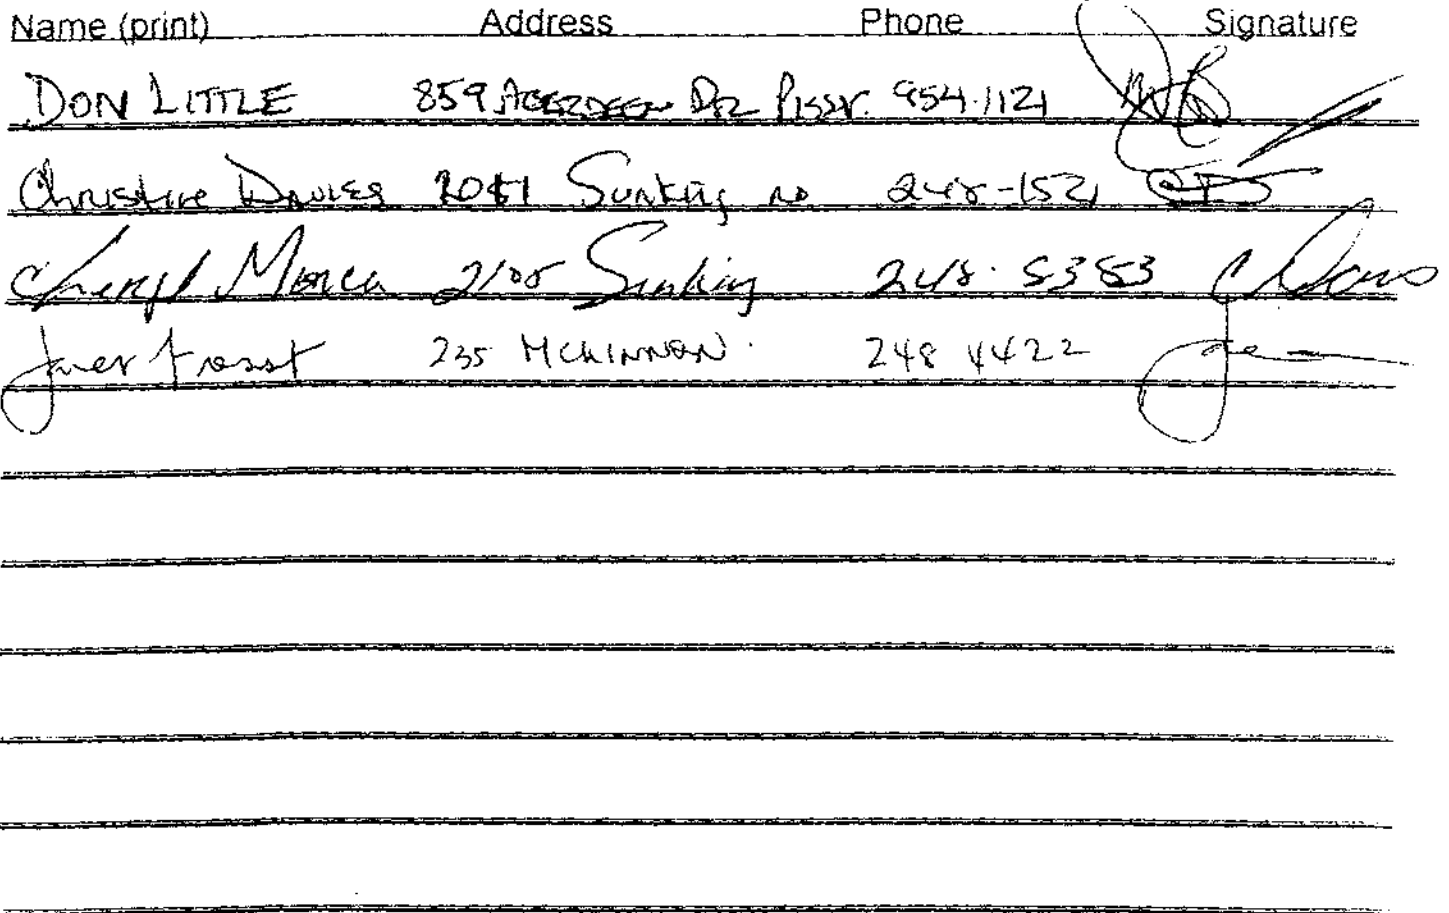 Name (print) Address Phone Signature
DON LITTLE 859 ABERDEEN DR 954.1121
Christine Davies Sunking 248-1521
Cheryl 2105 Sunking 248.5383
Frost 235 MCKINNON. 248 4422